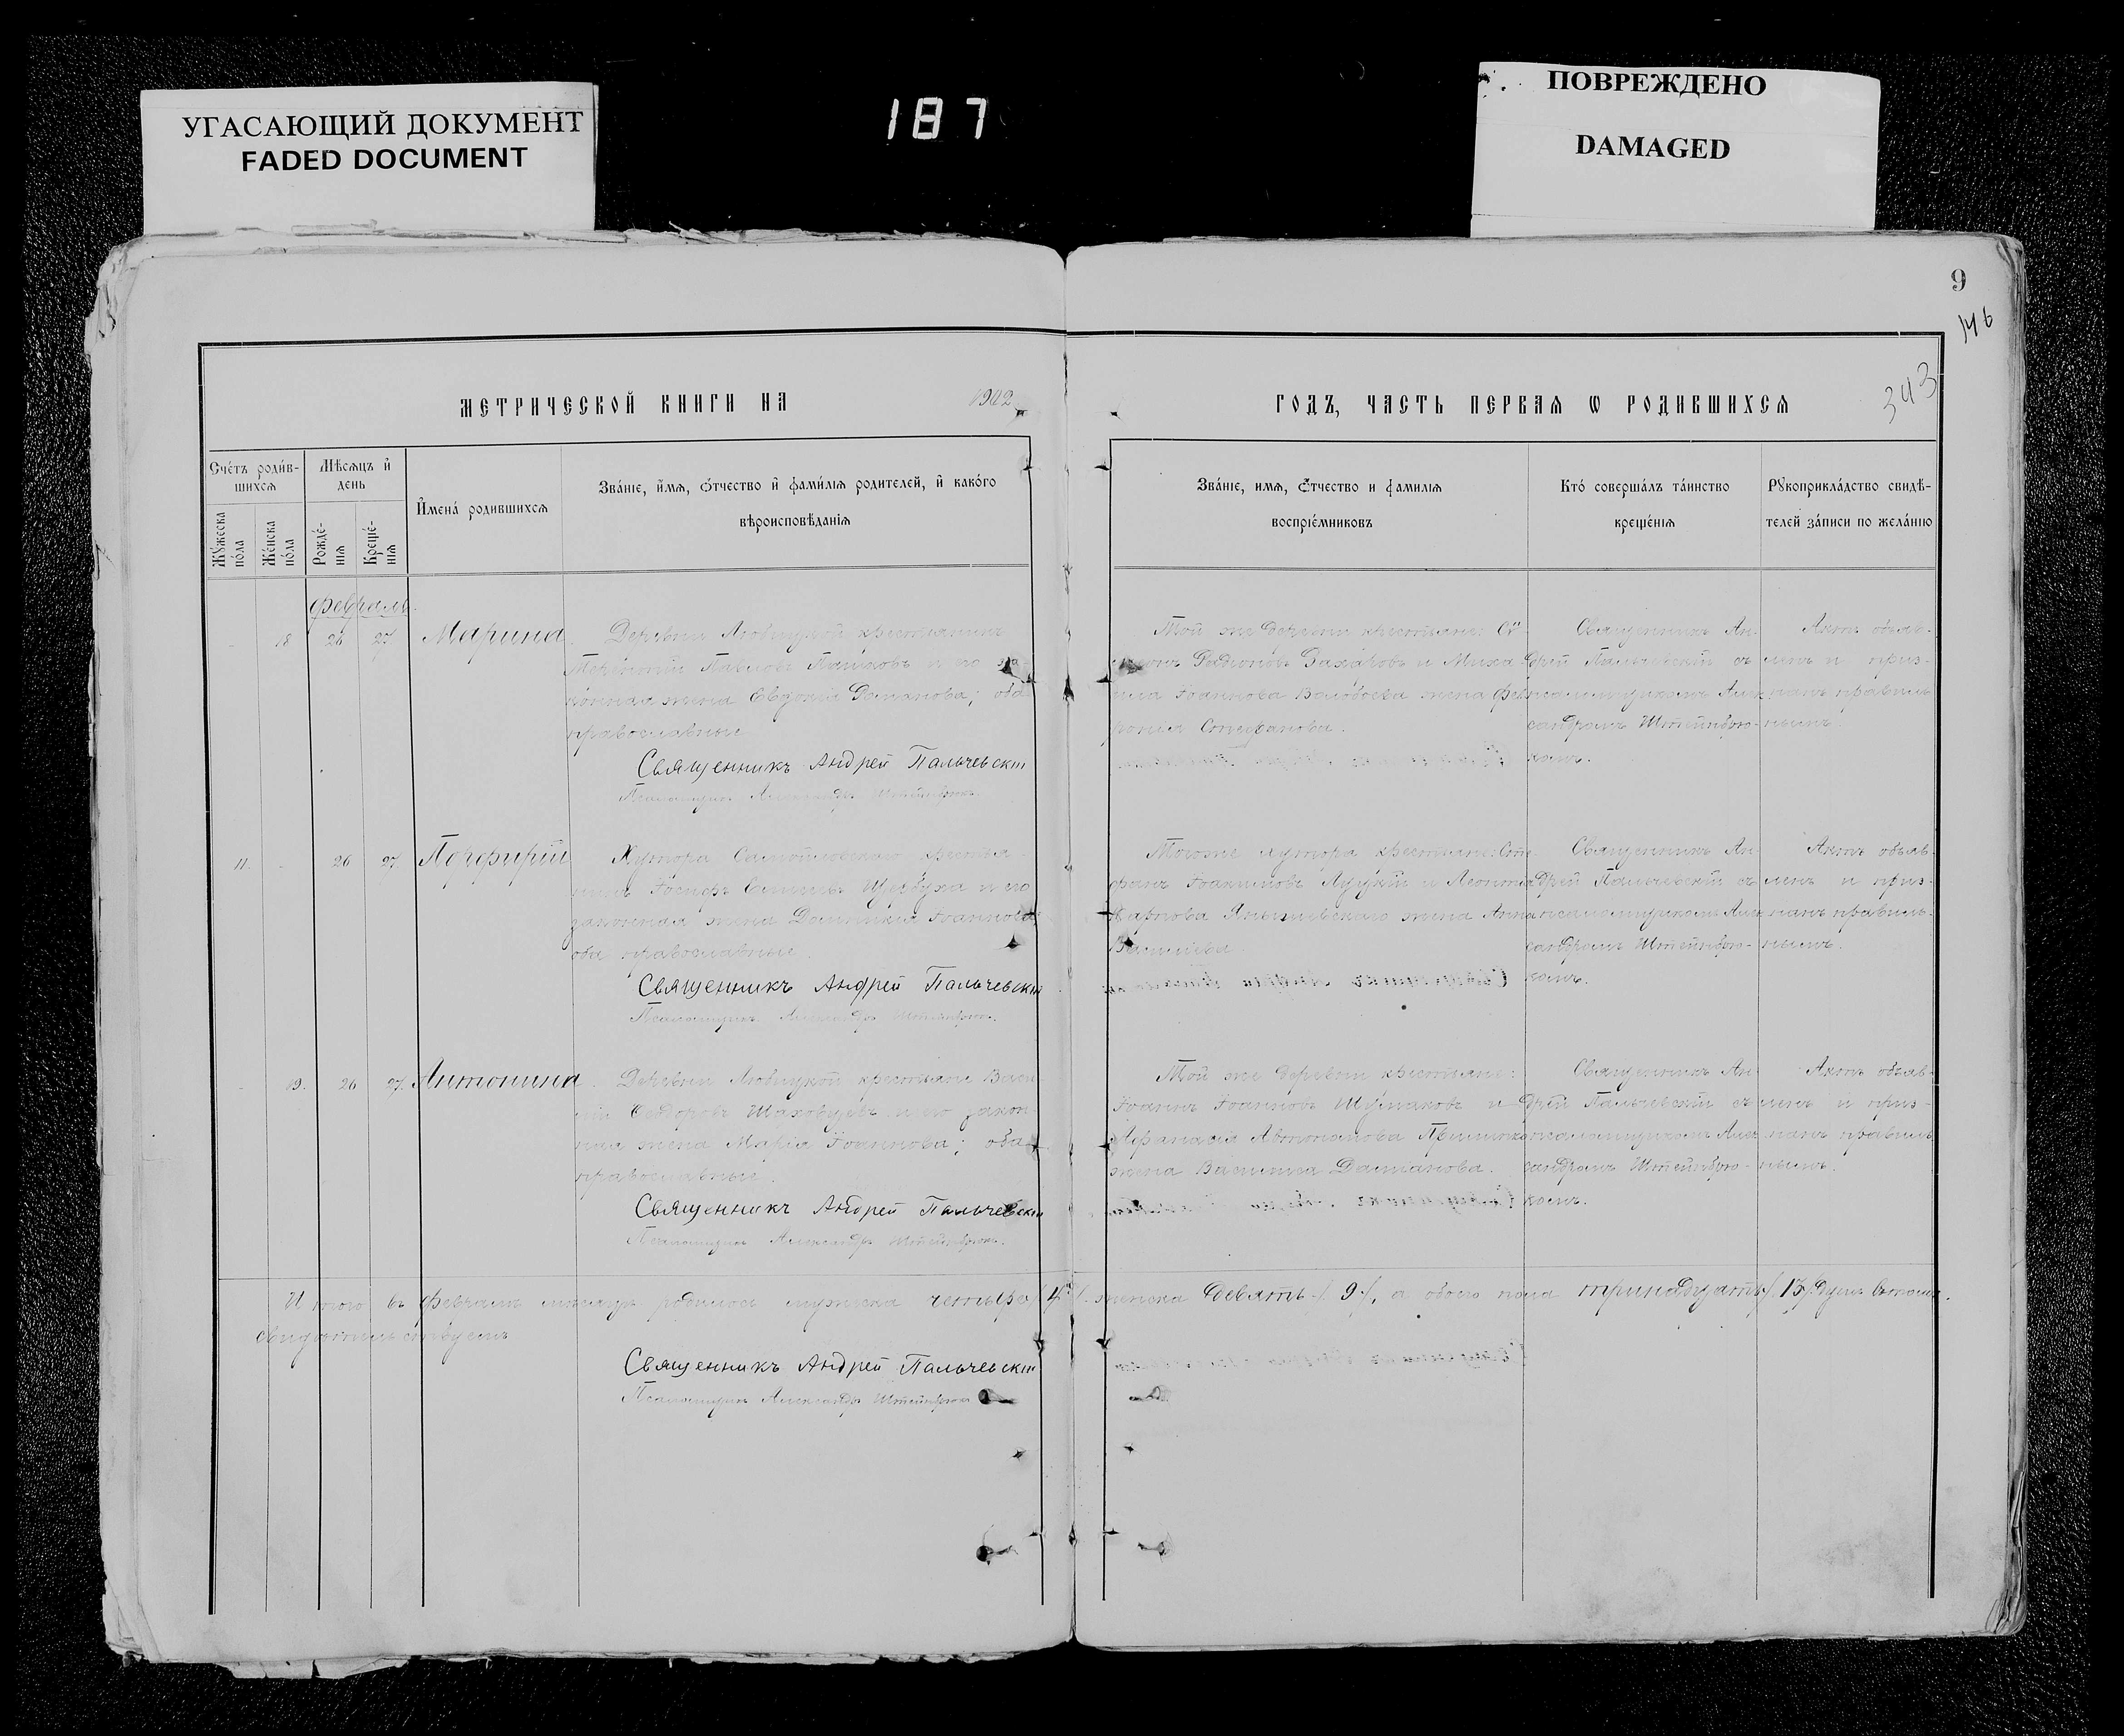 УГАСАЮЩИЙ ДОКУМЕНТ
FADED DOCUMENT
187
ПОВРЕЖДЕНО
DAMAGED
9
146
343
МЕТРИЧЕСКОЙ КНИГИ НА 1902
ГОДЪ, ЧАСТЬ ПЕРВАЯ Ѡ РОДИВШИХСЯ
Счетъ родив-
шихся
Мужеска
пола
Женска
пола
Мѣсяцъ и
день
Рожде-
нія
Креще-
нія
Имена родившихся
Званіе, имя, отчество и фамилія родителей, и какого
вѣроисповѣданія
Званіе, имя, отчество и фамилія
воспріемниковъ
Кто совершалъ таинство
крещенія
Рукоприкладство свидѣ-
телей записи по желанію
Февраль.
18 26 27 Марина.
Деревни крестьянинъ
Павловъ и его за-
конная жена Евдокія Романова; оба
православные
Священникъ Андрей Пальчевскій
Псаломщикъ Александръ Штейнбрюкъ.
Той же деревни крестьяне:
Родіоновъ Захаровъ и Миха-
ила Іоаннова жена Фев-
ронія Стефанова.
Священникъ Ан-
дрей Пальчевскій съ
псаломщикомъ Алек-
сандромъ Штейнбрю-
комъ.
Актъ объяв-
ленъ и приз-
нанъ правиль-
нымъ.
11. 26 27. Порфирій
Хутора крестья-
нинъ Іосифъ Щербуха и его
законная жена Домникія Іоаннова;
оба православные.
Священникъ Андрей Пальчевскій
Псаломщикъ Александръ Штейнбрюкъ.
Того же хутора крестьяне: Сте-
фанъ Іоакимовъ Луцкій и Леонтія
Карпова жена Анна
Василіева.
Священникъ Ан-
дрей Пальчевскій съ
псаломщикомъ Алек-
сандромъ Штейнбрю-
комъ.
Актъ объяв-
ленъ и приз-
нанъ правиль-
нымъ.
19. 26 27. Антонина.
Деревни крестьяне Васи-
лій Ѳеодоровъ и его закон-
ная жена Марія Іоаннова; оба
православные.
Священникъ Андрей Пальчевскій
Псаломщикъ Александръ Штейнбрюкъ.
Той же деревни крестьяне:
Іоаннъ Іоанновъ Шумаковъ и
Аѳанасія Автономова
жена Василиса Даміанова.
Священникъ Ан-
дрей Пальчевскій съ
псаломщикомъ Алек-
сандромъ Штейнбрю-
комъ.
Актъ объяв-
ленъ и приз-
нанъ правиль-
нымъ.
Итого въ Февралѣ мѣсяцѣ родилось мужеска четыре /4/. женска девять /9/, а обоего пола тринадцать /13/ душъ
свидѣтельствуемъ
Священникъ Андрей Пальчевскій
Псаломщикъ Александръ Штейнбрюкъ